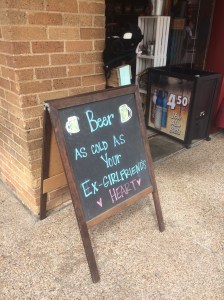 Beer
AS COLD AS
YOUR
EX-GIRLFRIEND'S
HEART
4.50